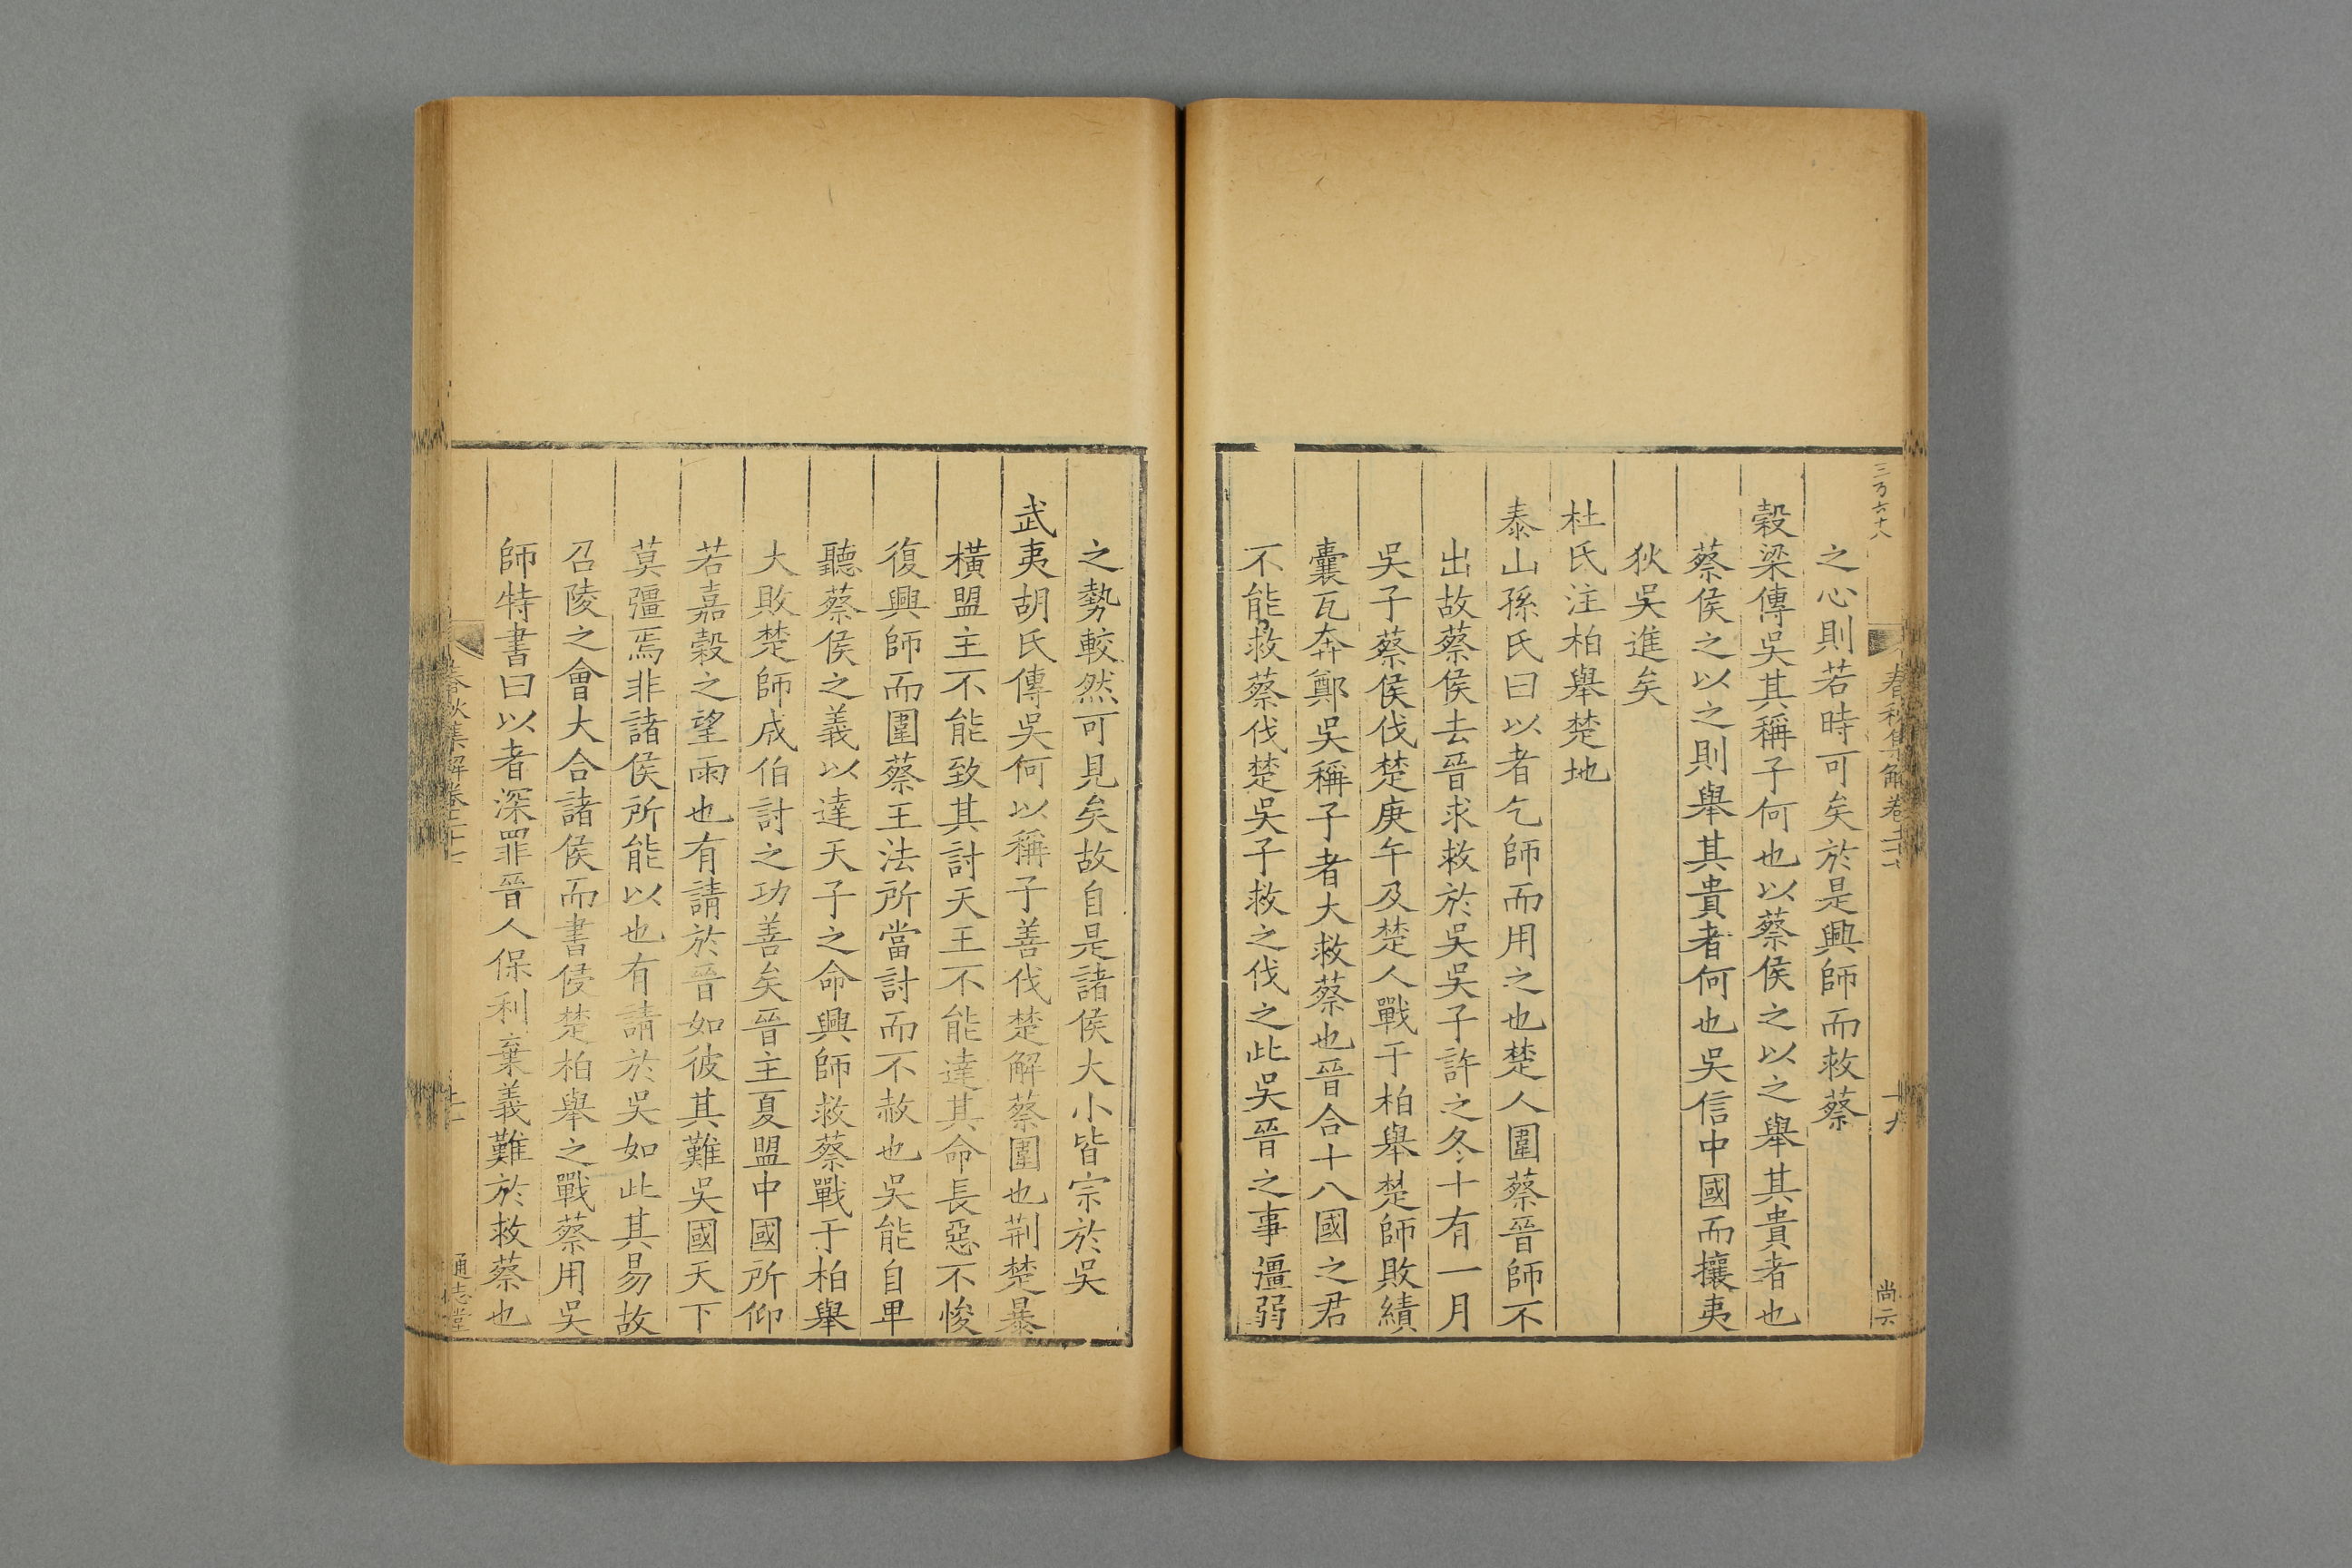 三百六十八
春秋集解卷二十七
十九
尚云
之心則若時可矣於是興師而救蔡
穀梁傳吳其稱子何也以蔡侯之以之舉其貴者也
蔡侯之以之則舉其貴者何也吳信中國而攘夷
狄吳進矣
杜氏注柏舉楚地
泰山孫氏曰以者乞師而用之也楚人圍蔡晉師不
出故蔡侯去晉求救於吳吳子許之冬十有一月
吳子蔡侯伐楚庚午及楚人戰于柏舉楚師敗績
囊瓦奔鄭吳稱子者大救蔡也晉合十八國之君
不能救蔡伐楚吳子救之伐之此吳晉之事彊弱
之勢較然可見矣故自是諸侯大小皆宗於吳
武夷胡氏傳吳何以稱子善伐楚解蔡圍也荆楚暴
橫盟主不能致其討天王不能達其命長惡不悛
復興師而圍蔡王法所當討而不赦也吳能自卑
聽蔡侯之義以達天子之命興師救蔡戰于柏舉
大敗楚師成伯討之功善矣晉主夏盟中國所仰
若嘉穀之望雨也有請於晉如彼其難吳國天下
莫彊焉非諸侯所能以也有請於吳如此其易故
召陵之會大合諸侯而書侵楚柏舉之戰蔡用吳
師特書曰以者深罪晉人保利棄義難於救蔡也
春秋集解卷二十七
通志堂